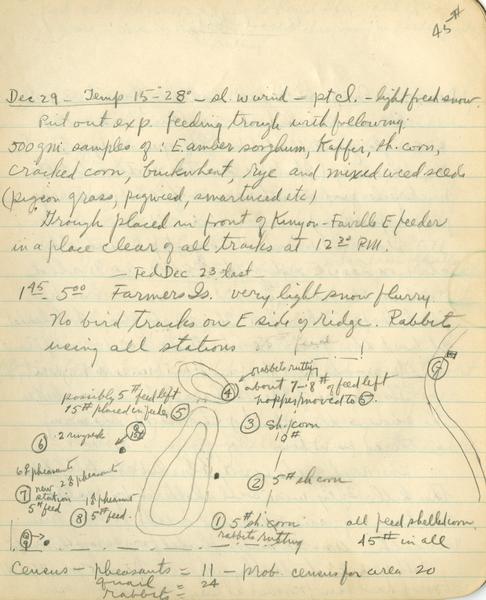 45#
Dec 29 - Temp 15-28° - sl. w wind - pt cl. - light fresh snow.
Put out exp. feeding trough with following:
500 gm. samples of: E amber sorghum, Kaffer, sh. corn,
cracked corn, buckwheat, rye and mixed weed seeds
(pigeon grass, pigweed, smartweed etc)
Trough placed in front of Kinyon-Faville E feeder
in a place clear of all tracks at 12 30 P.M.
- Fed Dec 23 last -
1 45 - 5 00 Farmers Is. very light snow flurry.
No bird tracks on E side of ridge. Rabbits
using all stations
rabbits rutting
possibly 5# feed left
15# placed in 5
4 about 7-8# feed left
hopper moved to 5.
3 sh. corn
10#
6 2 ringneck
6 pheasants
2 pheasants
7 new station
5# feed
1 pheasant
8 5# feed.
2 5# sh corn
1 5# sh. corn
rabbits rutting
all feed shelled corn
45# in all
Census - pheasants = 11 - prob. census for area 20
quail = 24
rabbits =